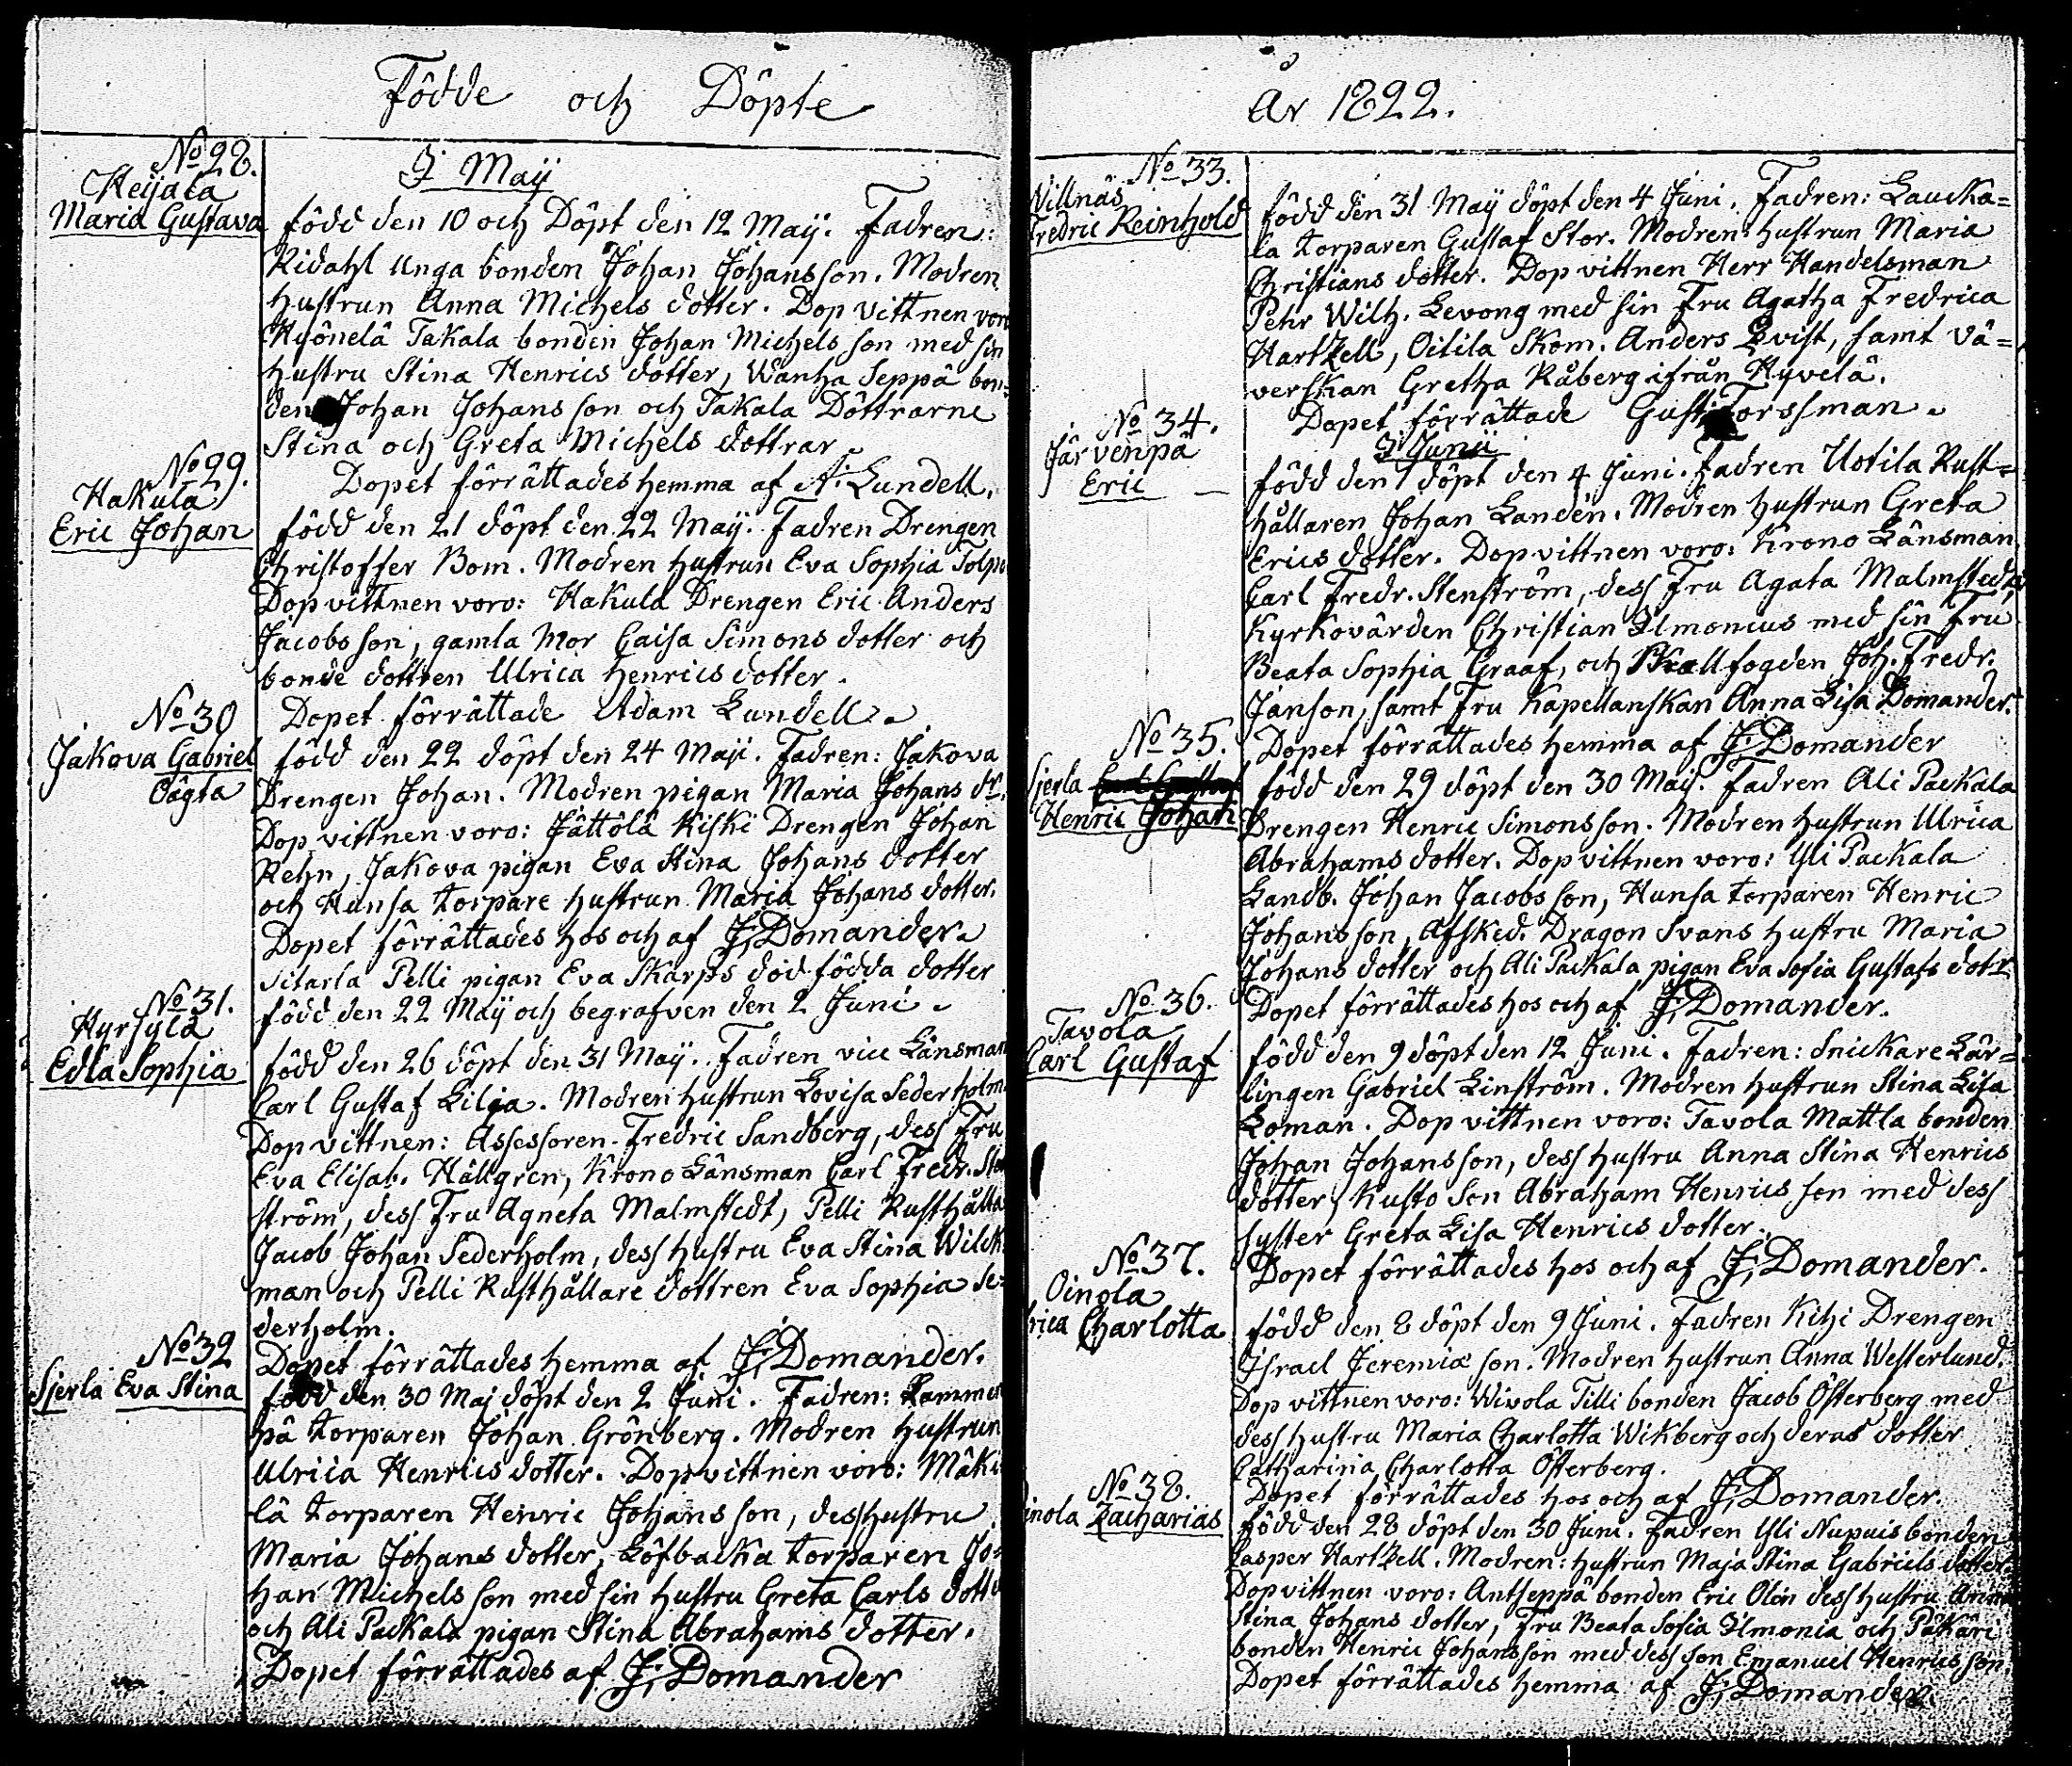 Födde och Döpte
No 28.
Keijala
Maria Gustava
I Maij
född den 10 och Döpt den 12 Maij. Fadren:
Ridahl Unga bonden Johan Johansson. Modren
hustrun Anna Michels dotter. Dop vittnen voro
Takala bonden Johan Michels son med sin
hustru Stina Henrics dotter, Wanha Seppä bon-
den Johan Johans son och Takala Döttrarne
Stina och Greta Michels dottrar.
Dopet förrättades hemma af A. Lundell.
No 29.
Hakula
Eric Johan
född den 21 döpt den 22 Maij. Fadren Drengen
Christoffer Bom. Modren hustrun Eva Sophia Tolpo
Dop vittnen voro: Hakula Drengen Eric Anders
Jacobs son, gamla Mor Caisa Simons dotter och
bonde dottren Ulrica Henrics dotter.
Dopet förrättade Adam Lundell.
No 30
Jakova Gabriel
Oägta
född den 22 döpt den 24 Maji. Fadren: Jakova
Drengen Johan. Modren pigan Maria Johans dr.
Dop vittnen voro: Jättölä Kiski Drengen Johan
Rehn, Jakova pigan Eva Stina Johans dotter
och Hunsa torpare hustrun Maria Johans dotter.
Dopet förrättades hos och af J. Domander.
Sitarla Pelli pigan Eva Skarps död födda dotter
född den 22 Maij och begrafven den 2 Juni.
No 31.
Hyrsylä
Edla Sophia
född den 26 döpt den 31 Maij. Fadren vice Länsman
Carl Gustaf Lilja. Modren hustrun Lovisa Sederholm.
Dop vittnen: Assessoren Fredric Sandberg, dess Fru
Eva Elisab. Hällgren, Krono Länsman Carl Fredr. Sten
ström, dess Fru Agneta Malmstedt, Pelli Rusthålla
Jacob Johan Sederholm, dess hustru Eva Stina Wilck
man och Pelli Rusthållare dottren Eva Sophia Se-
derholm.
Dopet förrättades hemma af J. Domander.
No 32
Sjerla Eva Stina
född den 30 Maj döpt den 2 Juni. Fadren: Lammen
pä torparen Johan Grönberg. Modren hustrun
Ulrica Henrics dotter. Dop vittnen voro: Mäki
lä torparen Henric Johans son, dess hustru
Maria Johans dotter, Löfbacka torparen Jo-
han Michels son med sin hustru Greta Carls dotter
och Ali Packala pigan Stina Abrahams dotter.
Dopet förrättades af J. Domander
År 1822.
No 33.
Villnäs
Fredric Reinhold
född den 31 Maij döpt den 4 Juni. Fadren: Laucka=
la torparen Gustaf Stor. Modren: hustrun Maria
Christians dotter. Dop vittnen Herr Handelsman
Pehr Wilh. Levong med sin Fru Agatha Fredrica
Hartzell, Oitila Skom. Anders Qvist, samt Vä=
verskan Gretha Råberg ifrån Hyvelä.
Dopet förrättade Gust. Forssman.
No 34.
Järvenpä
Eric
I Junii
född den 1 döpt den 4 Juni. Fadren Uotila Rust=
hållaren Johan Landén. Modren hustrun Greta
Erics dotter. Dop vittnen voro: Krono Länsman
Carl Fredr. Stenström, dess Fru Agata Malmstedt,
Kyrkovärden Christian Ilmonius med sin Fru
Beata Sophia Graaf, och Skallfogden Joh. Fredr.
Janson, samt Fru Kapellanskan Anna Lisa Domander.
Dopet förrättades hemma af J. Domander
No 35.
Sjerla
Henric Johan
född den 29 döpt den 30 Maij. Fadren Ali Packala
Drengen Henric Simons son. Modren hustrun Ulrica
Abrahams dotter. Dop vittnen voro: Yli Packala
Landb. Johan Jacobs son, Hunsa torparen Henric
Johans son, Afsked. Dragon Svans hustru Maria
Johans dotter och Ali Packala pigan Eva Sofia Gustafs dot:r
Dopet förrättades hos och af J. Domander.
No 36.
Tavola
Carl Gustaf
född den 9 döpt den 12 Juni. Fadren: Snickare Lär=
lingen Gabriel Linström. Modren hustrun Stina Lisa
Loman. Dop vittnen voro: Tavola Mattla bonden
Johan Johans son, dess hustru Anna Stina Henrics
dotter, Kusto Son Abraham Henrics son med dess
syster Greta Lisa Henrics dotter.
Dopet förrättades hos och af J. Domander.
No 37.
Oinola
rica Charlotta
född den 8 döpt den 9 Juni. Fadren Kihi Drengen
Israel Jeremiæ son. Modren hustrun Anna Westerlund.
Dop vittnen voro: Wivola Tilli bonden Jacob Österberg med
dess hustru Maria Charlotta Wikberg och deras dotter
Catharina Charlotta Österberg.
Dopet förrättades hos och af J. Domander.
No 38.
inola Zacharias
född den 28 döpt den 30 Juni. Fadren Yli Nupuis bonden
Casper Hartzell. Modren: hustrun Maja Stina Gabriels dotter
Dop vittnen voro: Antseppä bonden Eric Olin dess hustru Anna
Stina Johans dotter, Fru Beata Sofia Ilmonia och Päkäri
bonden Henric Johansson med dess son Emanuel Henrics son.
Dopet förrättades hemma af J. Domander.